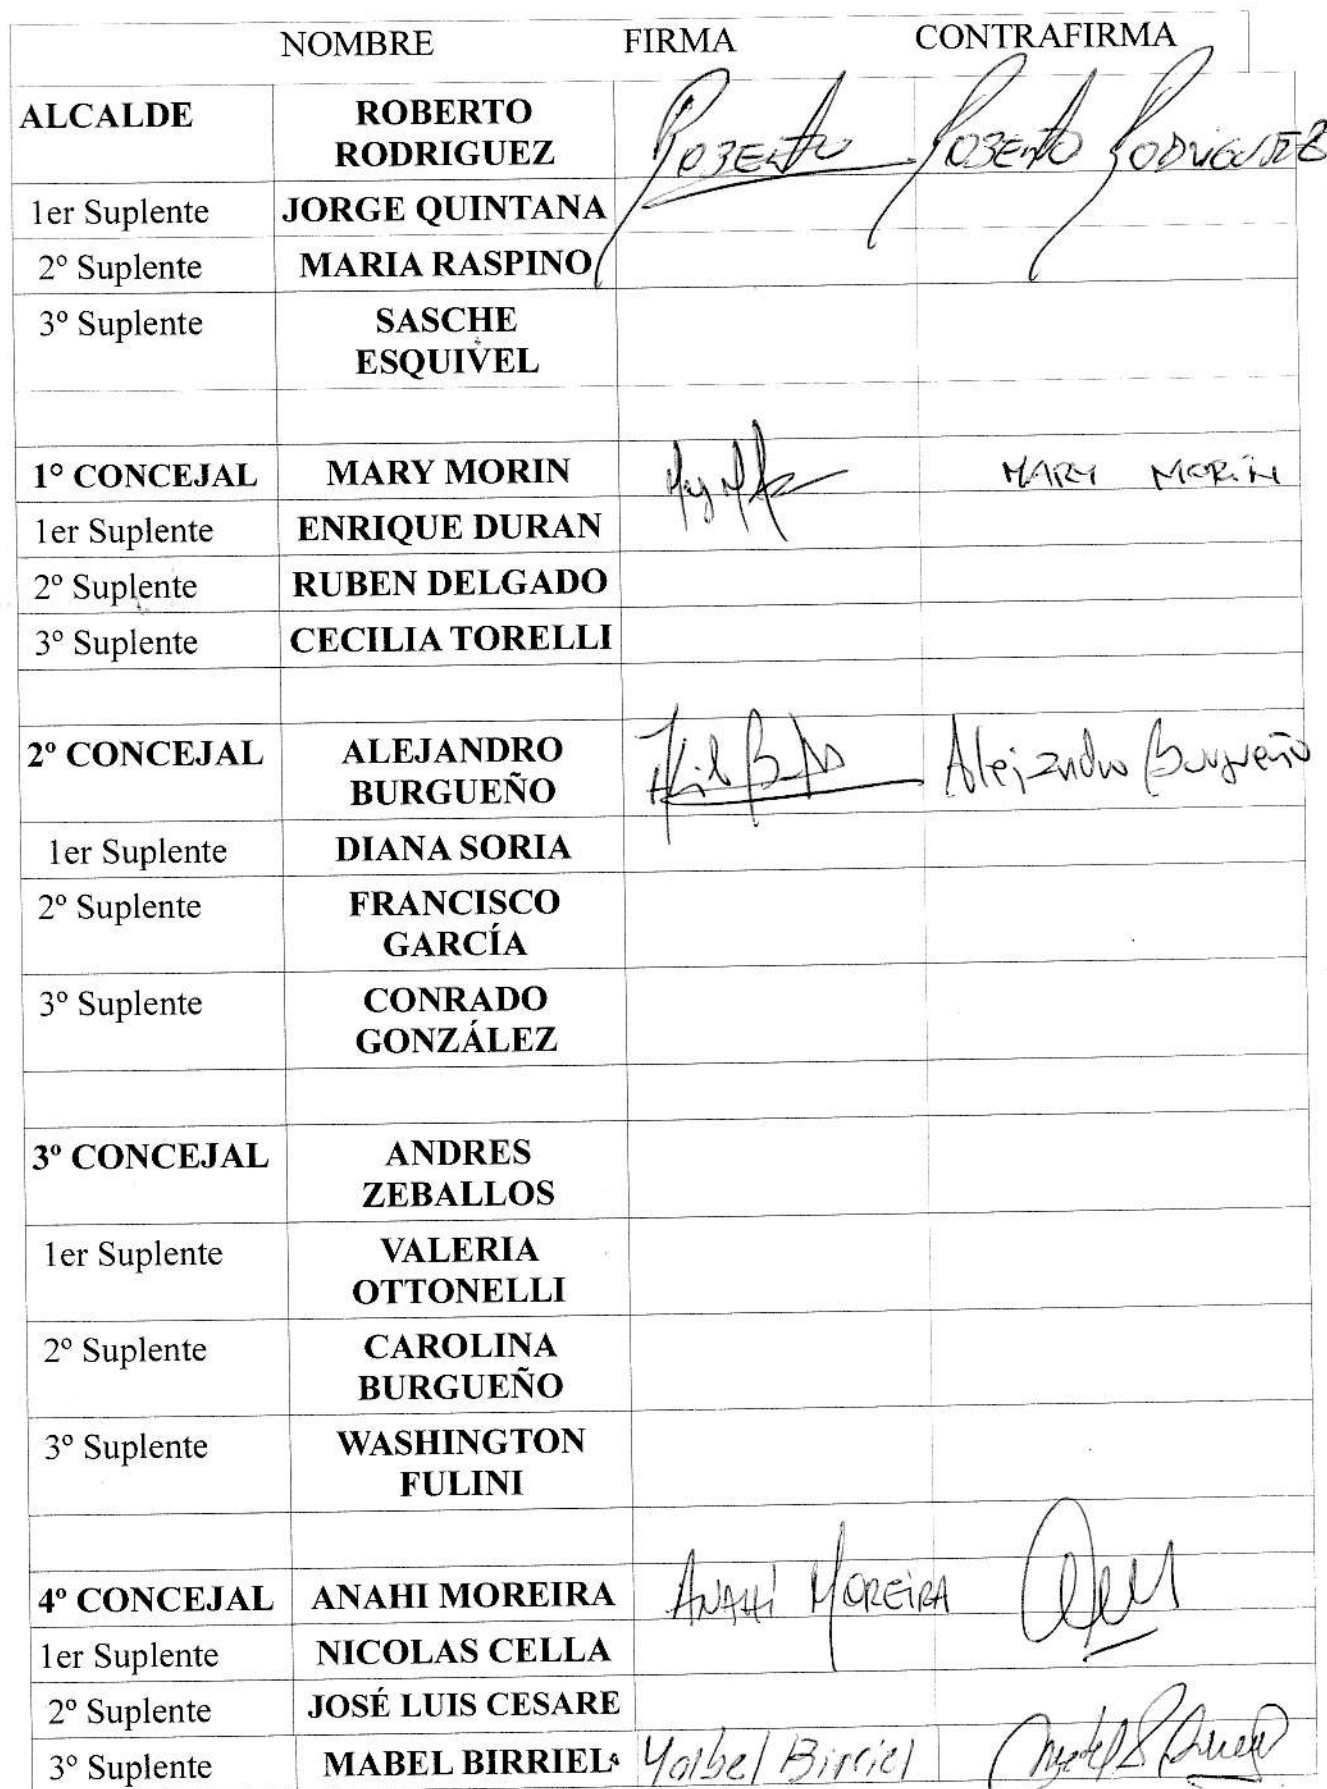 NOMBRE FIRMA CONTRAFIRMA
ALCALDE ROBERTO
RODRIGUEZ Roberto Roberto Rodriguez
1er Suplente JORGE QUINTANA
2º Suplente MARIA RASPINO
3º Suplente SASCHE
ESQUIVEL
1° CONCEJAL MARY MORIN MARY MORiN
1er Suplente ENRIQUE DURAN
2º Suplente RUBEN DELGADO
3º Suplente CECILIA TORELLI
2º CONCEJAL ALEJANDRO
BURGUEÑO Alejandro Burgueño
1er Suplente DIANA SORIA
2º Suplente FRANCISCO
GARCÍA
3º Suplente CONRADO
GONZÁLEZ
3º CONCEJAL ANDRES
ZEBALLOS
1er Suplente VALERIA
OTTONELLI
2º Suplente CAROLINA
BURGUEÑO
3º Suplente WASHINGTON
FULINI
4º CONCEJAL ANAHI MOREIRA ANAHí MOREiRA
1er Suplente NICOLAS CELLA
2º Suplente JOSÉ LUIS CESARE
3º Suplente MABEL BIRRIEL Mabel Birriel